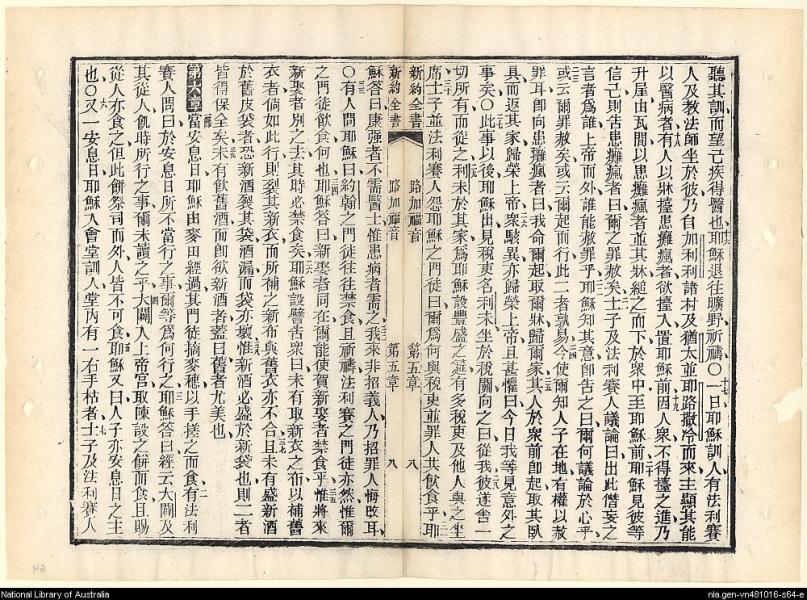 聽其訓而望己疾得醫也耶穌退往曠野祈禱○十七一日耶穌訓人有法利賽
人及教法師坐於彼乃自加利利諸村及猶太並耶路撒冷而來主顯其能
以醫病者十八有人以牀擡患癱瘋者欲擡人置耶穌前十九因人衆不得擡之進乃
升屋由瓦間以患癱瘋者並其牀縋之而下於衆中至耶穌前二十耶穌見彼等
信己則告患癱瘋者曰爾之罪赦矣士子及法利賽人議論曰出此僭妄之
言者爲誰上帝而外誰能赦罪乎耶穌知其意卽告之曰爾何議論於心乎
或云爾罪赦矣或云爾起而行此二者孰易今使爾知人子在地有權以赦
罪耳卽向患癱瘋者曰我命爾起取爾牀歸爾家其人於衆前卽起取其臥
具而返其家歸榮上帝衆駭異亦歸榮上帝且甚懼曰今日我等見意外之
事矣○此事以後耶穌出見稅吏名利未坐於稅關向之曰從我彼遂舍一
切所有而從之利未於其家爲耶穌設豐盛之筵有多稅吏及他人與之坐
席士子並法利賽人怨耶穌之門徒曰爾爲何與稅吏並罪人共飲食乎耶
新約全書 路加福音 第五章 八
新約全書 路加福音 第五章 八
穌答曰康强者不需醫士惟患病者需之我來非招義人乃招罪人悔改耳
○有人問耶穌曰約翰之門徒往往禁食且祈禱法利賽之門徒亦然惟爾
之門徒飲食何也耶穌答曰新娶者同在爾能使賀新娶者禁食乎惟將來
新娶者別之去其時必禁食矣耶穌設譬告衆曰未有取新衣之布以補舊
衣者倘如此行則裂其新衣而所補之新布與舊衣亦不合且未有盛新酒
於舊皮袋者恐新酒裂其袋酒漏而袋亦壞惟新酒必盛於新袋也則二者
皆得保全矣未有飲舊酒而卽欲新酒者蓋曰舊者尤美也
第六章當安息日耶穌由麥田經過其門徒摘麥穗以手搓之而食有法利
賽人問曰於安息日所不當行之事爾等爲何行之耶穌答曰經云大闢及
其從人飢時所行之事爾未讀之乎大闢入上帝宮取陳設之餅而食且賜
從人亦食之但此餅祭司而外人皆不可食耶穌又曰人子亦安息日之主
也○又一安息日耶穌入會堂訓人堂內有一右手枯者士子及法利賽人
National Library of Australia
nla.gen-vn481016-s64-e